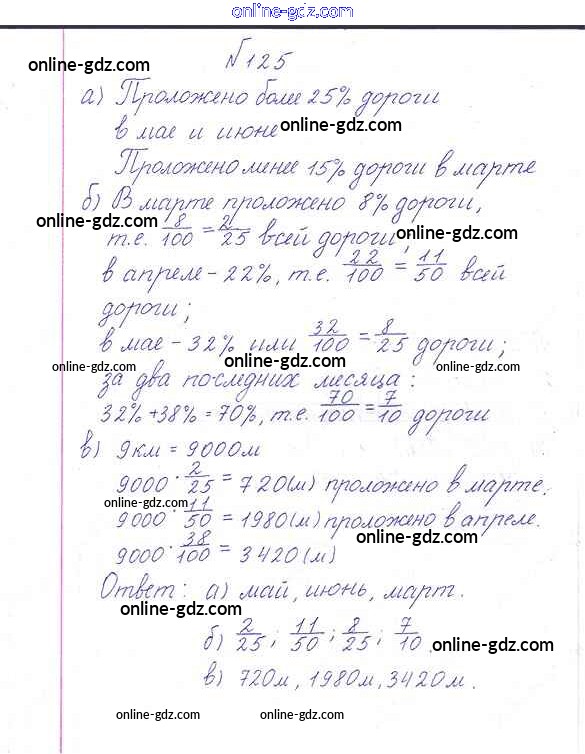 online-gdz.com
№125
online-gdz.com
а) Проложено более 25% дороги
в мае и июне online-gdz.com
Проложено менее 15% дороги в марте
б) В марте проложено 8% дороги,
online-gdz.com
т.е. 8/100 = 2/25 всей дороги; online-gdz.com
в апреле - 22%, т.е. 22/100 = 11/50 всей
дороги;
в мае - 32% или 32/100 = 8/25 дороги;
online-gdz.com online-gdz.com online-gdz.com
за два последних месяца:
32% + 38% = 70%, т.е. 70/100 = 7/10 дороги
в) 9км = 9000м
9000 · 2/25 = 720(м) проложено в марте.
online-gdz.com
9000 · 11/50 = 1980(м) проложено в апреле.
online-gdz.com
9000 · 38/100 = 3420(м)
Ответ: а) май, июнь, март.
online-gdz.com
б) 2/25; 11/50; 8/25; 7/10.
online-gdz.com
в) 720м, 1980м, 3420м.
online-gdz.com online-gdz.com